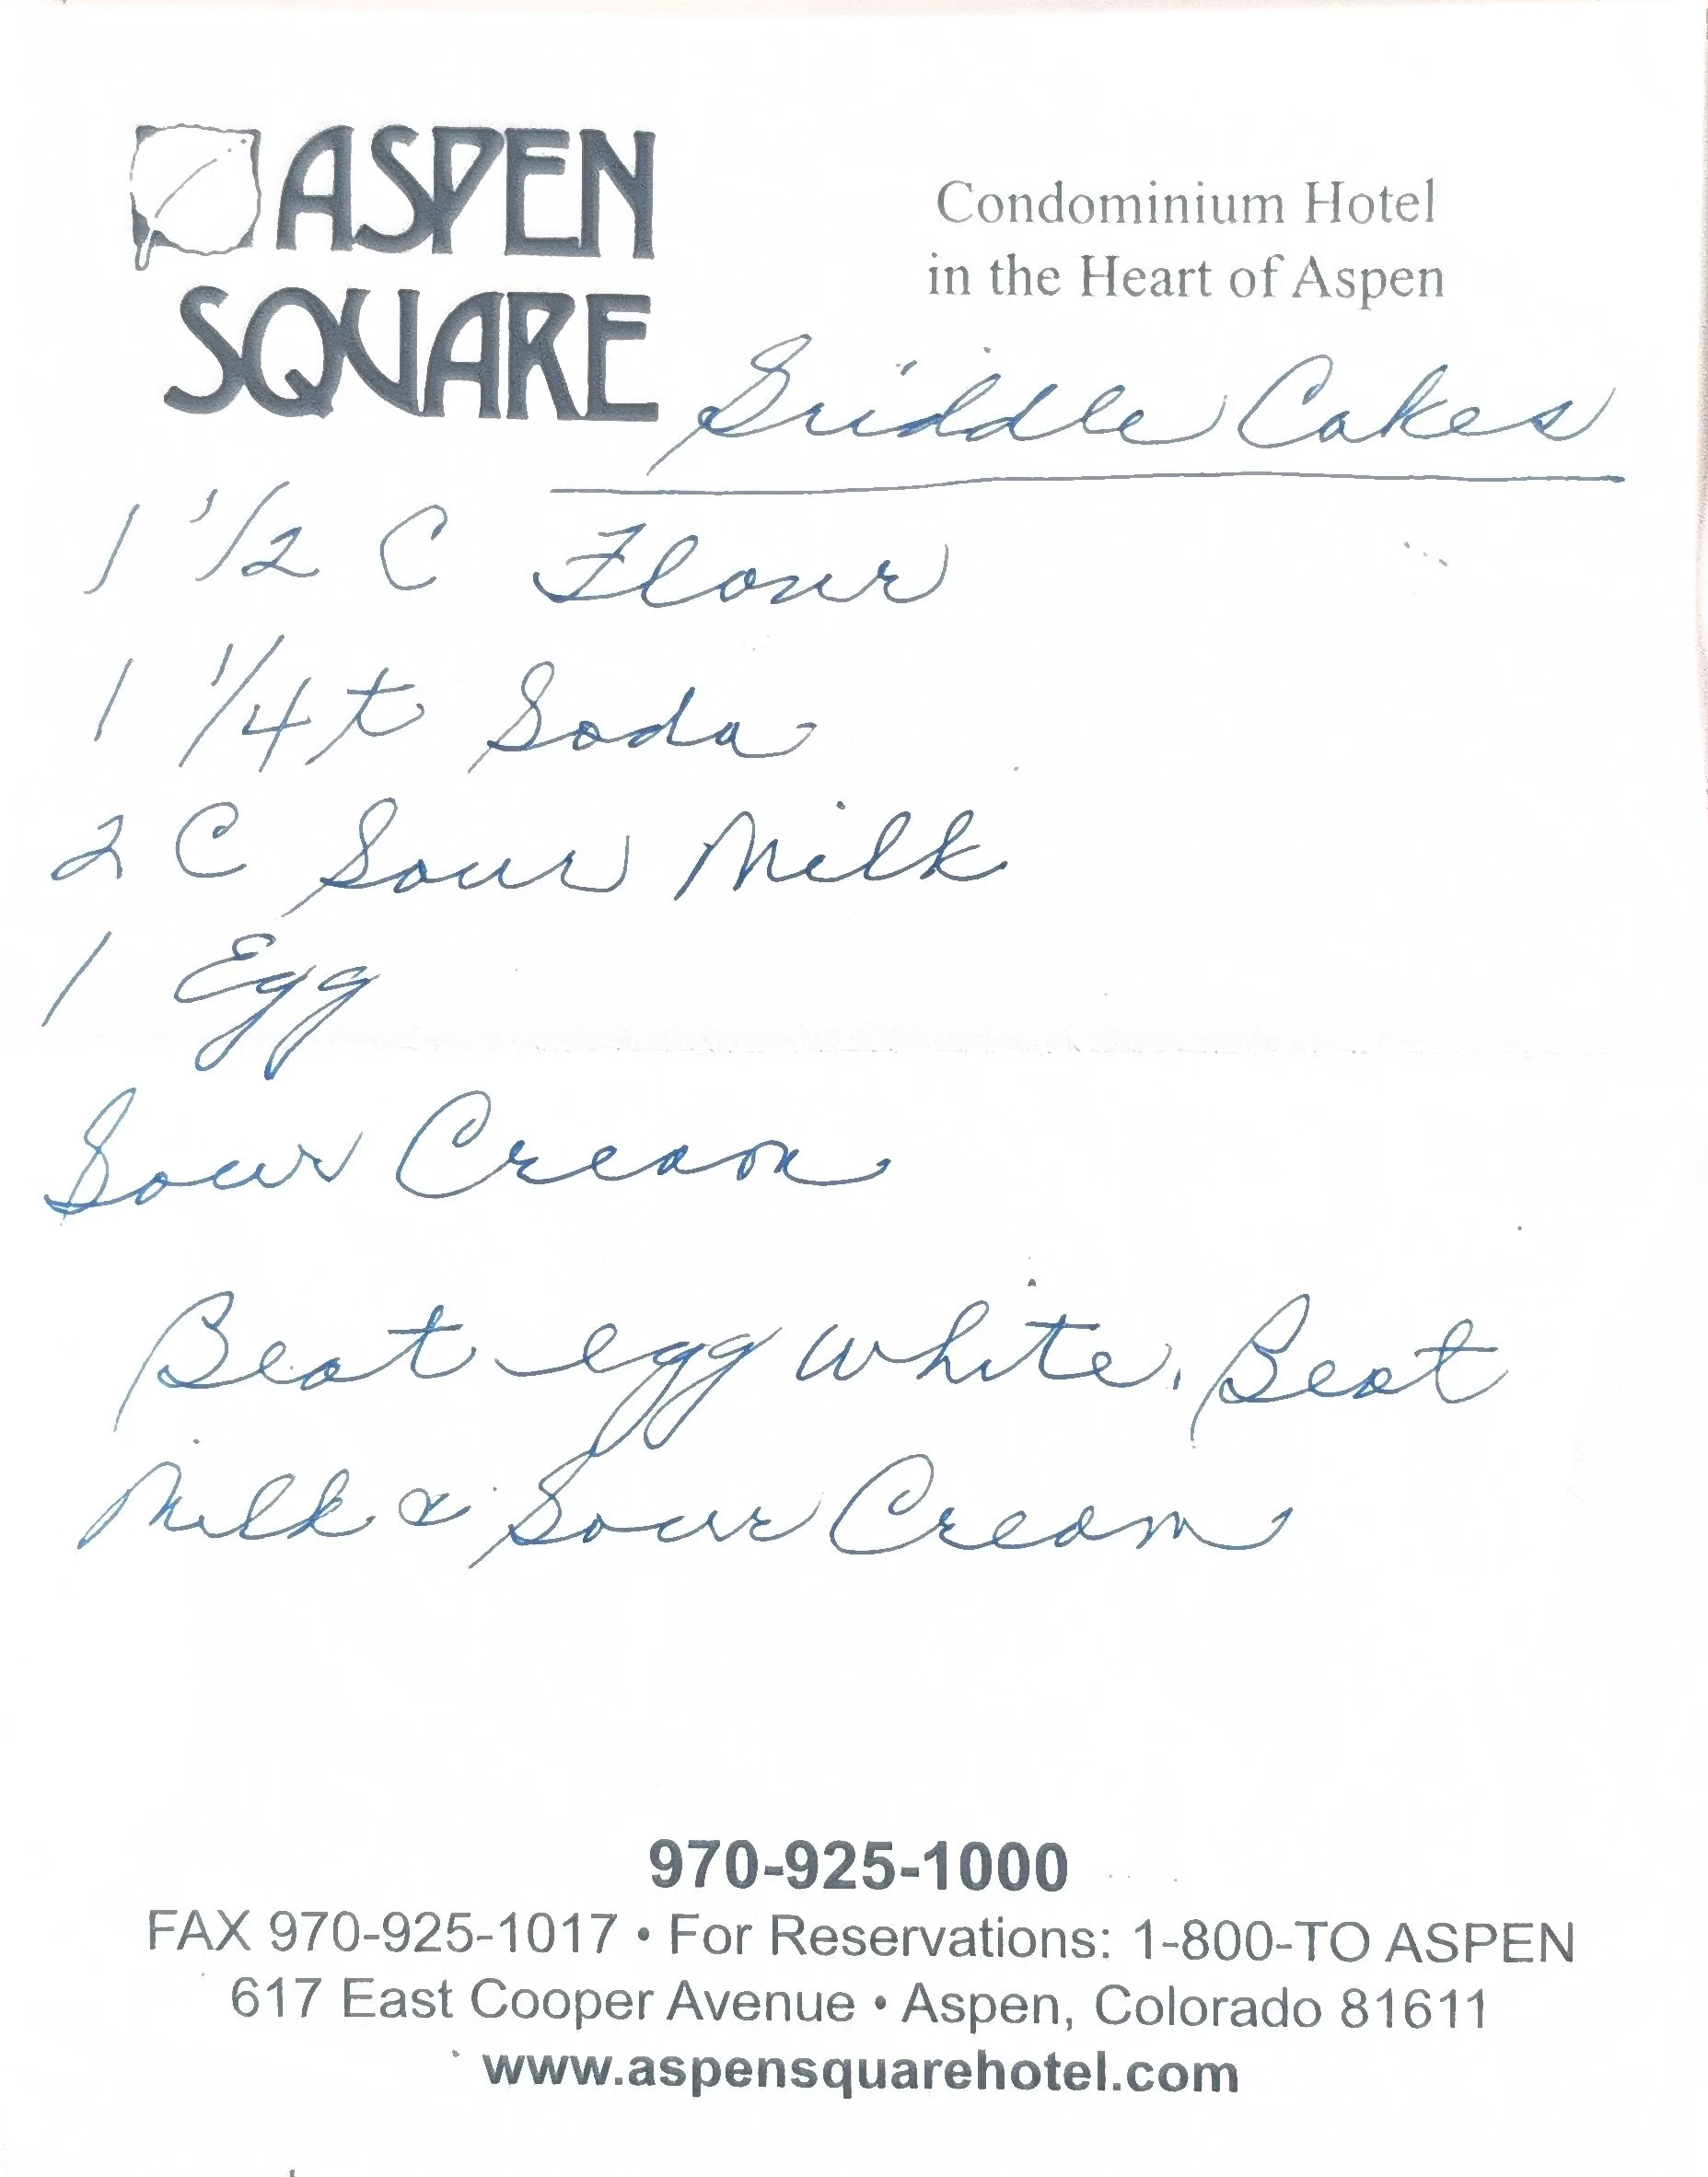 ASPEN
SQUARE
Condominium Hotel
in the Heart of Aspen
Griddle Cakes
1 1/2 C Flour
1 1/4 t Soda
2 C Sour Milk
1 Egg
Sour Cream
Beat egg white. Beat
Milk & Sour Cream
970-925-1000
FAX 970-925-1017 • For Reservations: 1-800-TO ASPEN
617 East Cooper Avenue • Aspen, Colorado 81611
www.aspensquarehotel.com